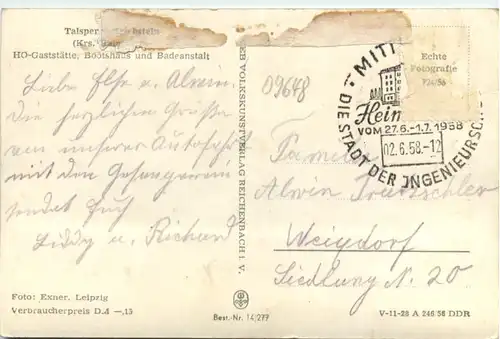 Talsper
(Krs.
HO-Gaststätte, Bootshaus und Badeanstalt
Liebe Else u. Alwin.
Die herzlichen Grüße
von unserer Autofahrt
mit dem Gesangverein
sendet Euch
Liddy u. Richard
Foto: Exner, Leipzig
Verbraucherpreis DM —,15
EB VOLKSKUNSTVERLAG REICHENBACH I. V.
Best.-Nr. 14/277
09648
MITT
Hein
VOM 27.6.-1.7.1958
02.6.58.-12
DIE STADT DER INGENIEURSCH
Echte
Fotografie
Familie
Alwin
Weigdorf
Siedlung N. 20
V-11-28 A 246/56 DDR